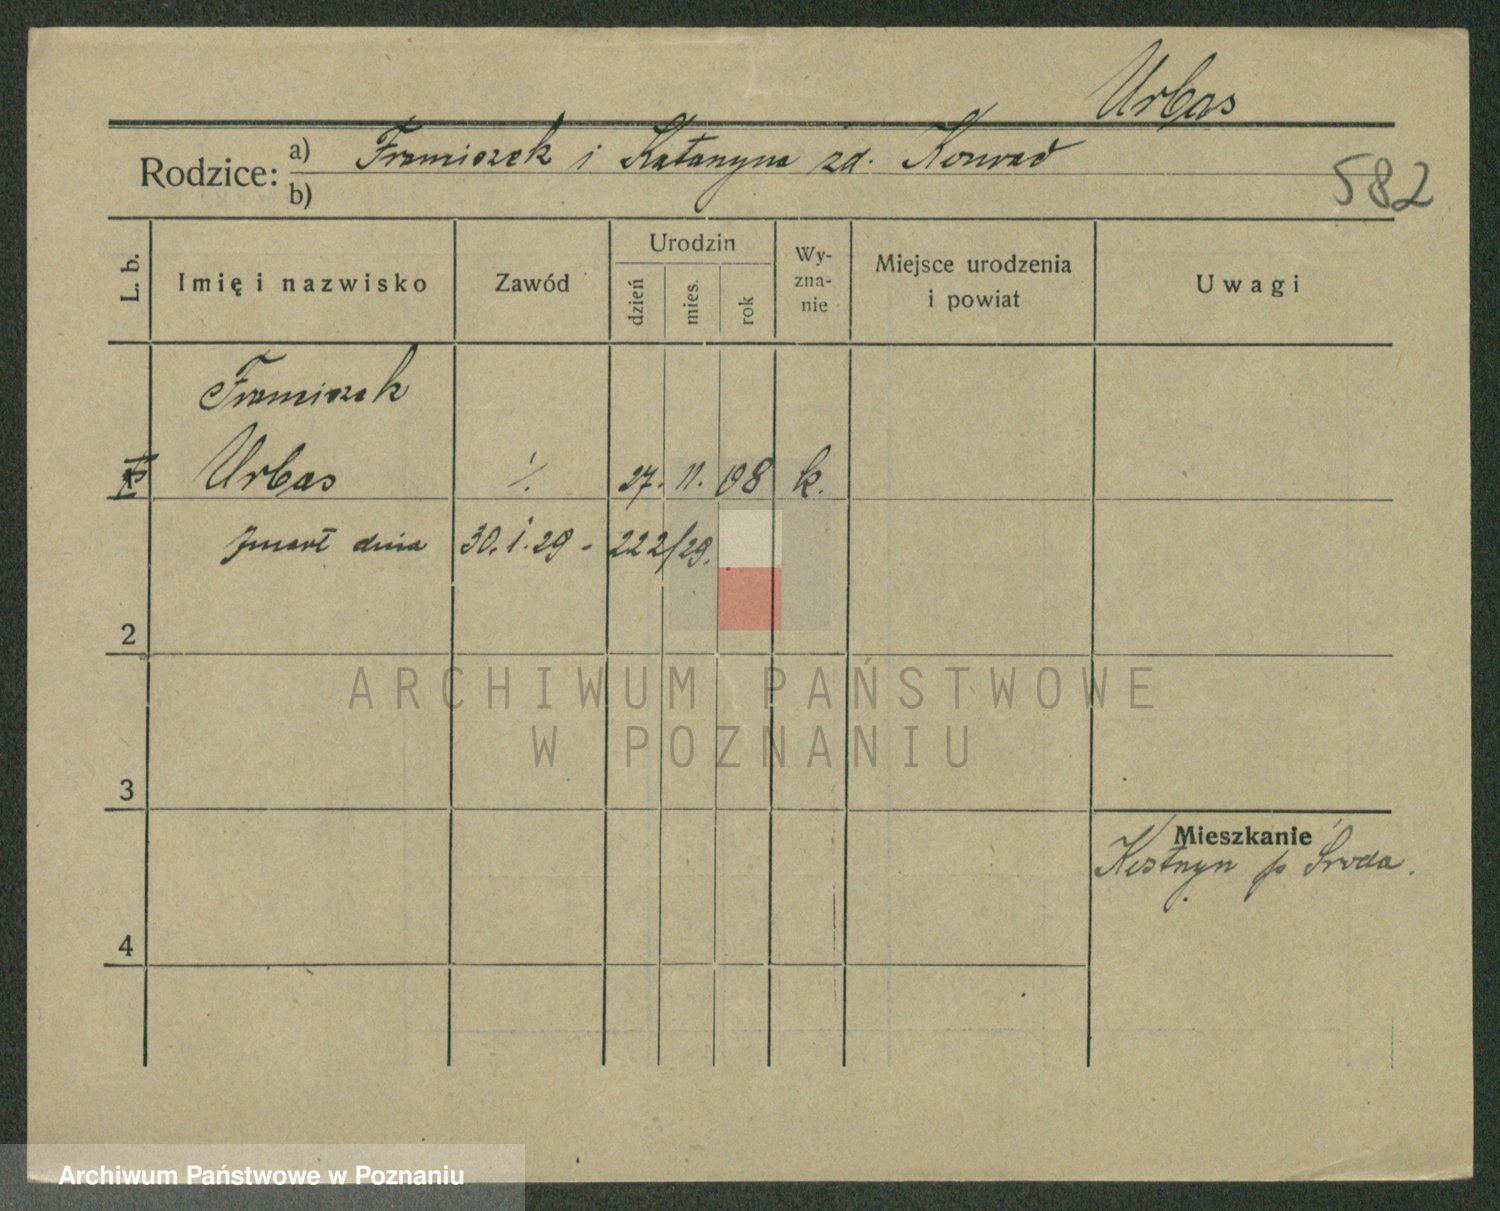 Urbas
Rodzice: a) Franciszek i Katarzyna zd. Konrad
b)
582
L. b.
Imię i nazwisko
Zawód
Urodzin
dzień
mies.
rok
Wy-
zna-
nie
Miejsce urodzenia
i powiat
Uwagi
Franciszek
Urbas ·/. 27. 11. 08 k.
zmarł dnia 30.1.29 - 222/29.
2
ARCHIWUM PAŃSTWOWE
W POZNANIU
3
Mieszkanie
p Środa.
4
Archiwum Państwowe w Poznaniu